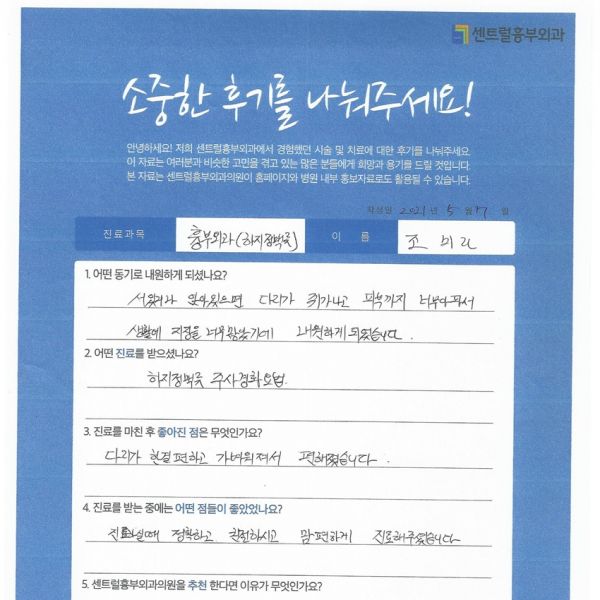 센트럴흉부외과
소중한 후기를 나눠주세요!
안녕하세요! 저희 센트럴흉부외과에서 경험했던 시술 및 치료에 대한 후기를 나눠주세요.
이 자료는 여러분과 비슷한 고민을 겪고 있는 많은 분들에게 희망과 용기를 드릴 것입니다.
본 자료는 센트럴흉부외과의원이 홈페이지와 병원 내부 홍보자료로도 활용될 수 있습니다.
작성일 2021 년 5 월 17 일
진료과목 흉부외과(하지정맥류) 이 름 조 미
1. 어떤 동기로 내원하게 되셨나요?
서있거나 앉아있으면 다리가 쥐가나고 피부까지 너무아파서
생활에 지장을 너무 내원하게 되었습니다.
2. 어떤 진료를 받으셨나요?
하지정맥류 주사경화요법.
3. 진료를 마친 후 좋아진 점은 무엇인가요?
다리가 한결편하고 가벼워져서 편해졌습니다.
4. 진료를 받는 중에는 어떤 점들이 좋았었나요?
진료 정확하고 친절하시고 맘편하게 진료해주셨습니다
5. 센트럴흉부외과의원을 추천 한다면 이유가 무엇인가요?